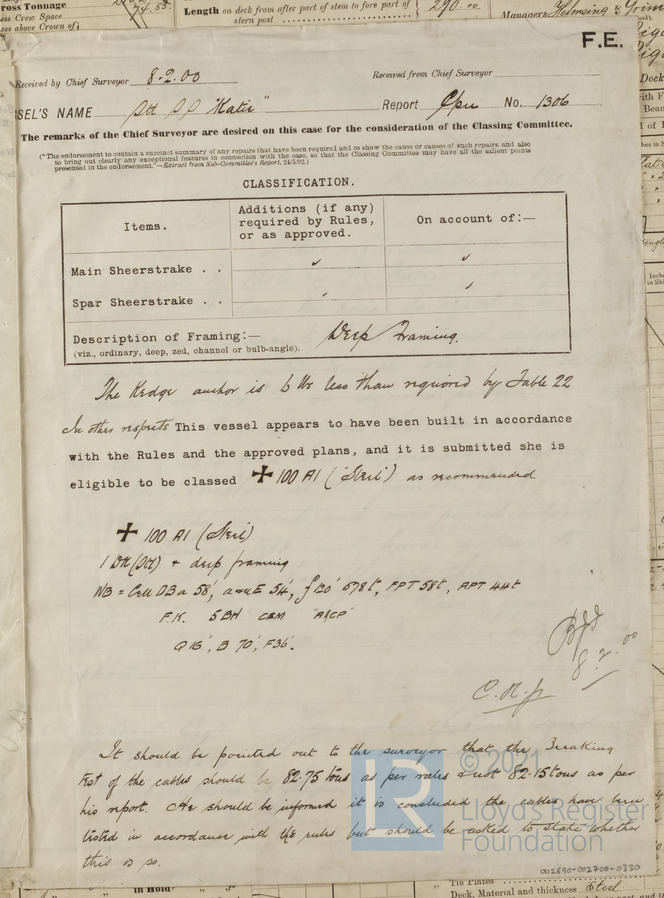 ross Tonnage
74.55
ess Crew Space
ess above Crown of
Length on deck from after part of stem to fore part of
stern post
290.00
Managers Helmsing & Grimm
F.E.
Received by Chief Surveyor 8.2.00
Received from Chief Surveyor
SEL'S NAME Stl SS "Katie"
Report No. 1306
The remarks of the Chief Surveyor are desired on this case for the consideration of the Classing Committee.
("The endorsement to contain a succinct summary of any repairs that have been required and to show the cause or causes of such repairs, and also
to bring out clearly any exceptional features in connection with the case, so that the Classing Committee may have all the salient points
presented in the endorsement."—Extract from Sub-Committee's Report, 24/5/92.)
CLASSIFICATION.
Items.
Additions (if any)
required by Rules,
or as approved.
On account of:—
Main Sheerstrake . . ✓ ✓
Spar Sheerstrake . . ✓ ✓
Description of Framing:— Deep Framing.
(viz., ordinary, deep, zed, channel or bulb-angle).
The Kedge anchor is 6 lbs less than required by Table 22
In other respects This vessel appears to have been built in accordance
with the Rules and the approved plans, and it is submitted she is
eligible to be classed ✠ 100 A1 (Steel) as recommended
✠ 100 A1 (Steel)
1 Dk (Stl) + deep framing
WB = Cell DB a 58', u&E 54', f 120' 578t, FPT 58t, APT 44t
F.K. 5BH CEM "A&CP"
Q 16', B 70', F 36'.
8.2.00
It should be pointed out to the surveyor that the Breaking
test of the cables should be 82.75 tons as per rules & not 82.15 tons as per
his report. He should be informed it is concluded the cables have been
tested in accordance with the rules but should be asked to state whether
this is so.
LR
© 2021
Lloyd's Register
Foundation
002690-002700-0330
In Hold
Tie Plates
Deck, Material and thickness Steel